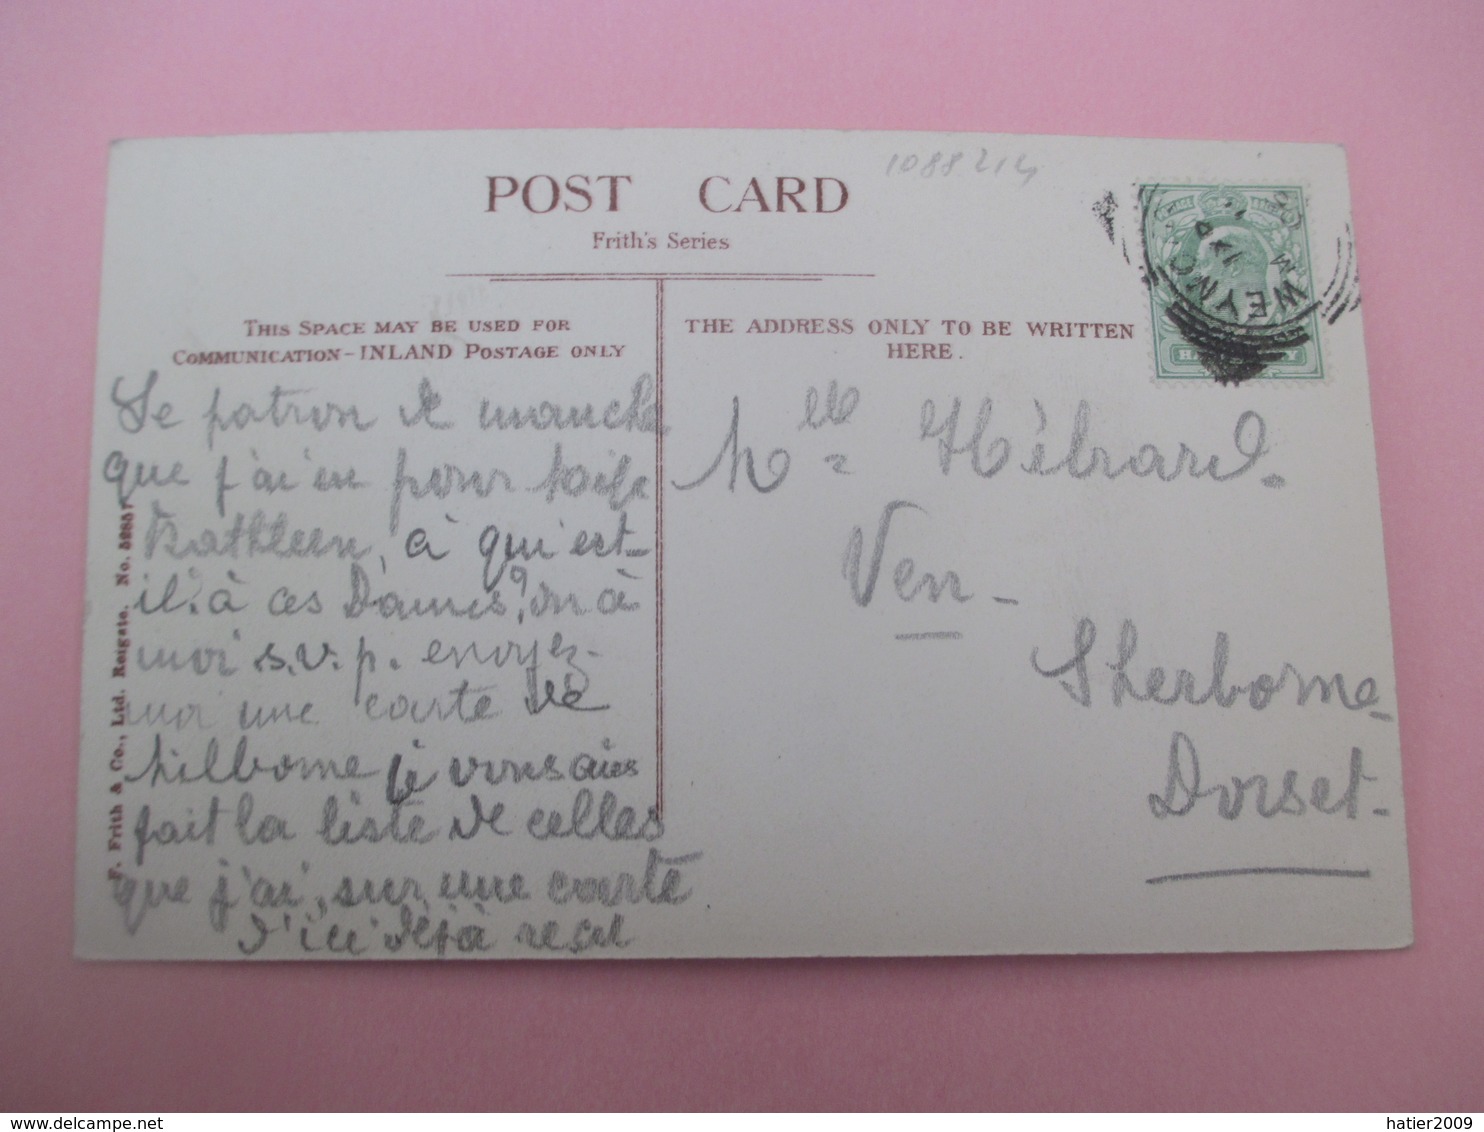 1088 214
POST CARD
Frith's Series
THIS SPACE MAY BE USED FOR
COMMUNICATION - INLAND POSTAGE ONLY
THE ADDRESS ONLY TO BE WRITTEN
HERE.
WEYMO
HALFPENNY
Le patron de manche
que j'ai eu pour
Kathleen, à qui est-
il? à ces Dames? ou à
moi s.v.p. envoyez-
moi une carte de
Milborne je vous ai
fait la liste de celles
que j'ai, sur une carte
d'ici déjà
Melle Hébrard.
Ven -
Sherborne
Dorset -
F. Frith & Co., Ltd. Reigate. No. 52857
hatier2009